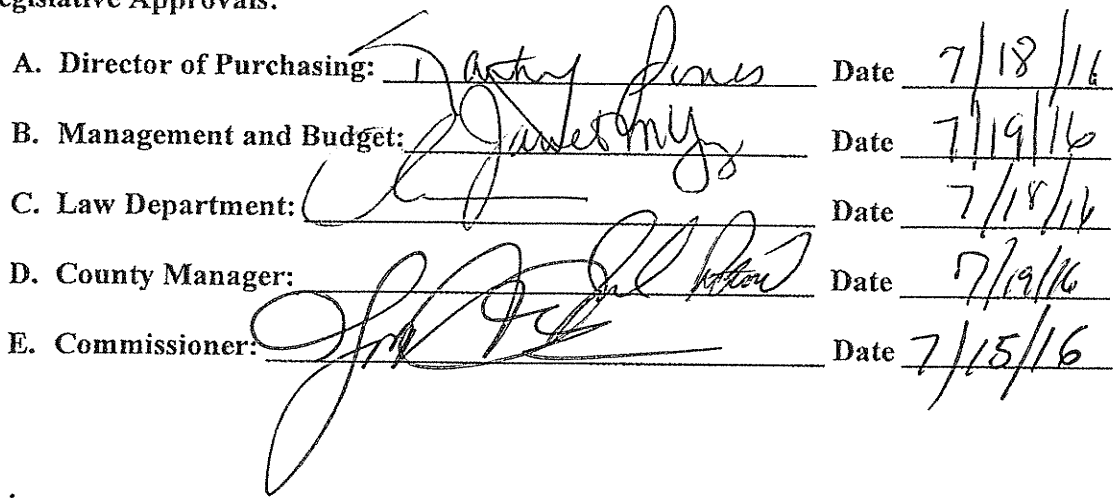 egislative Approvals:
A. Director of Purchasing: Date 7/18/16
B. Management and Budget: Date 7/19/16
C. Law Department: Date 7/18/16
D. County Manager: Date 7/19/16
E. Commissioner: Date 7/15/16